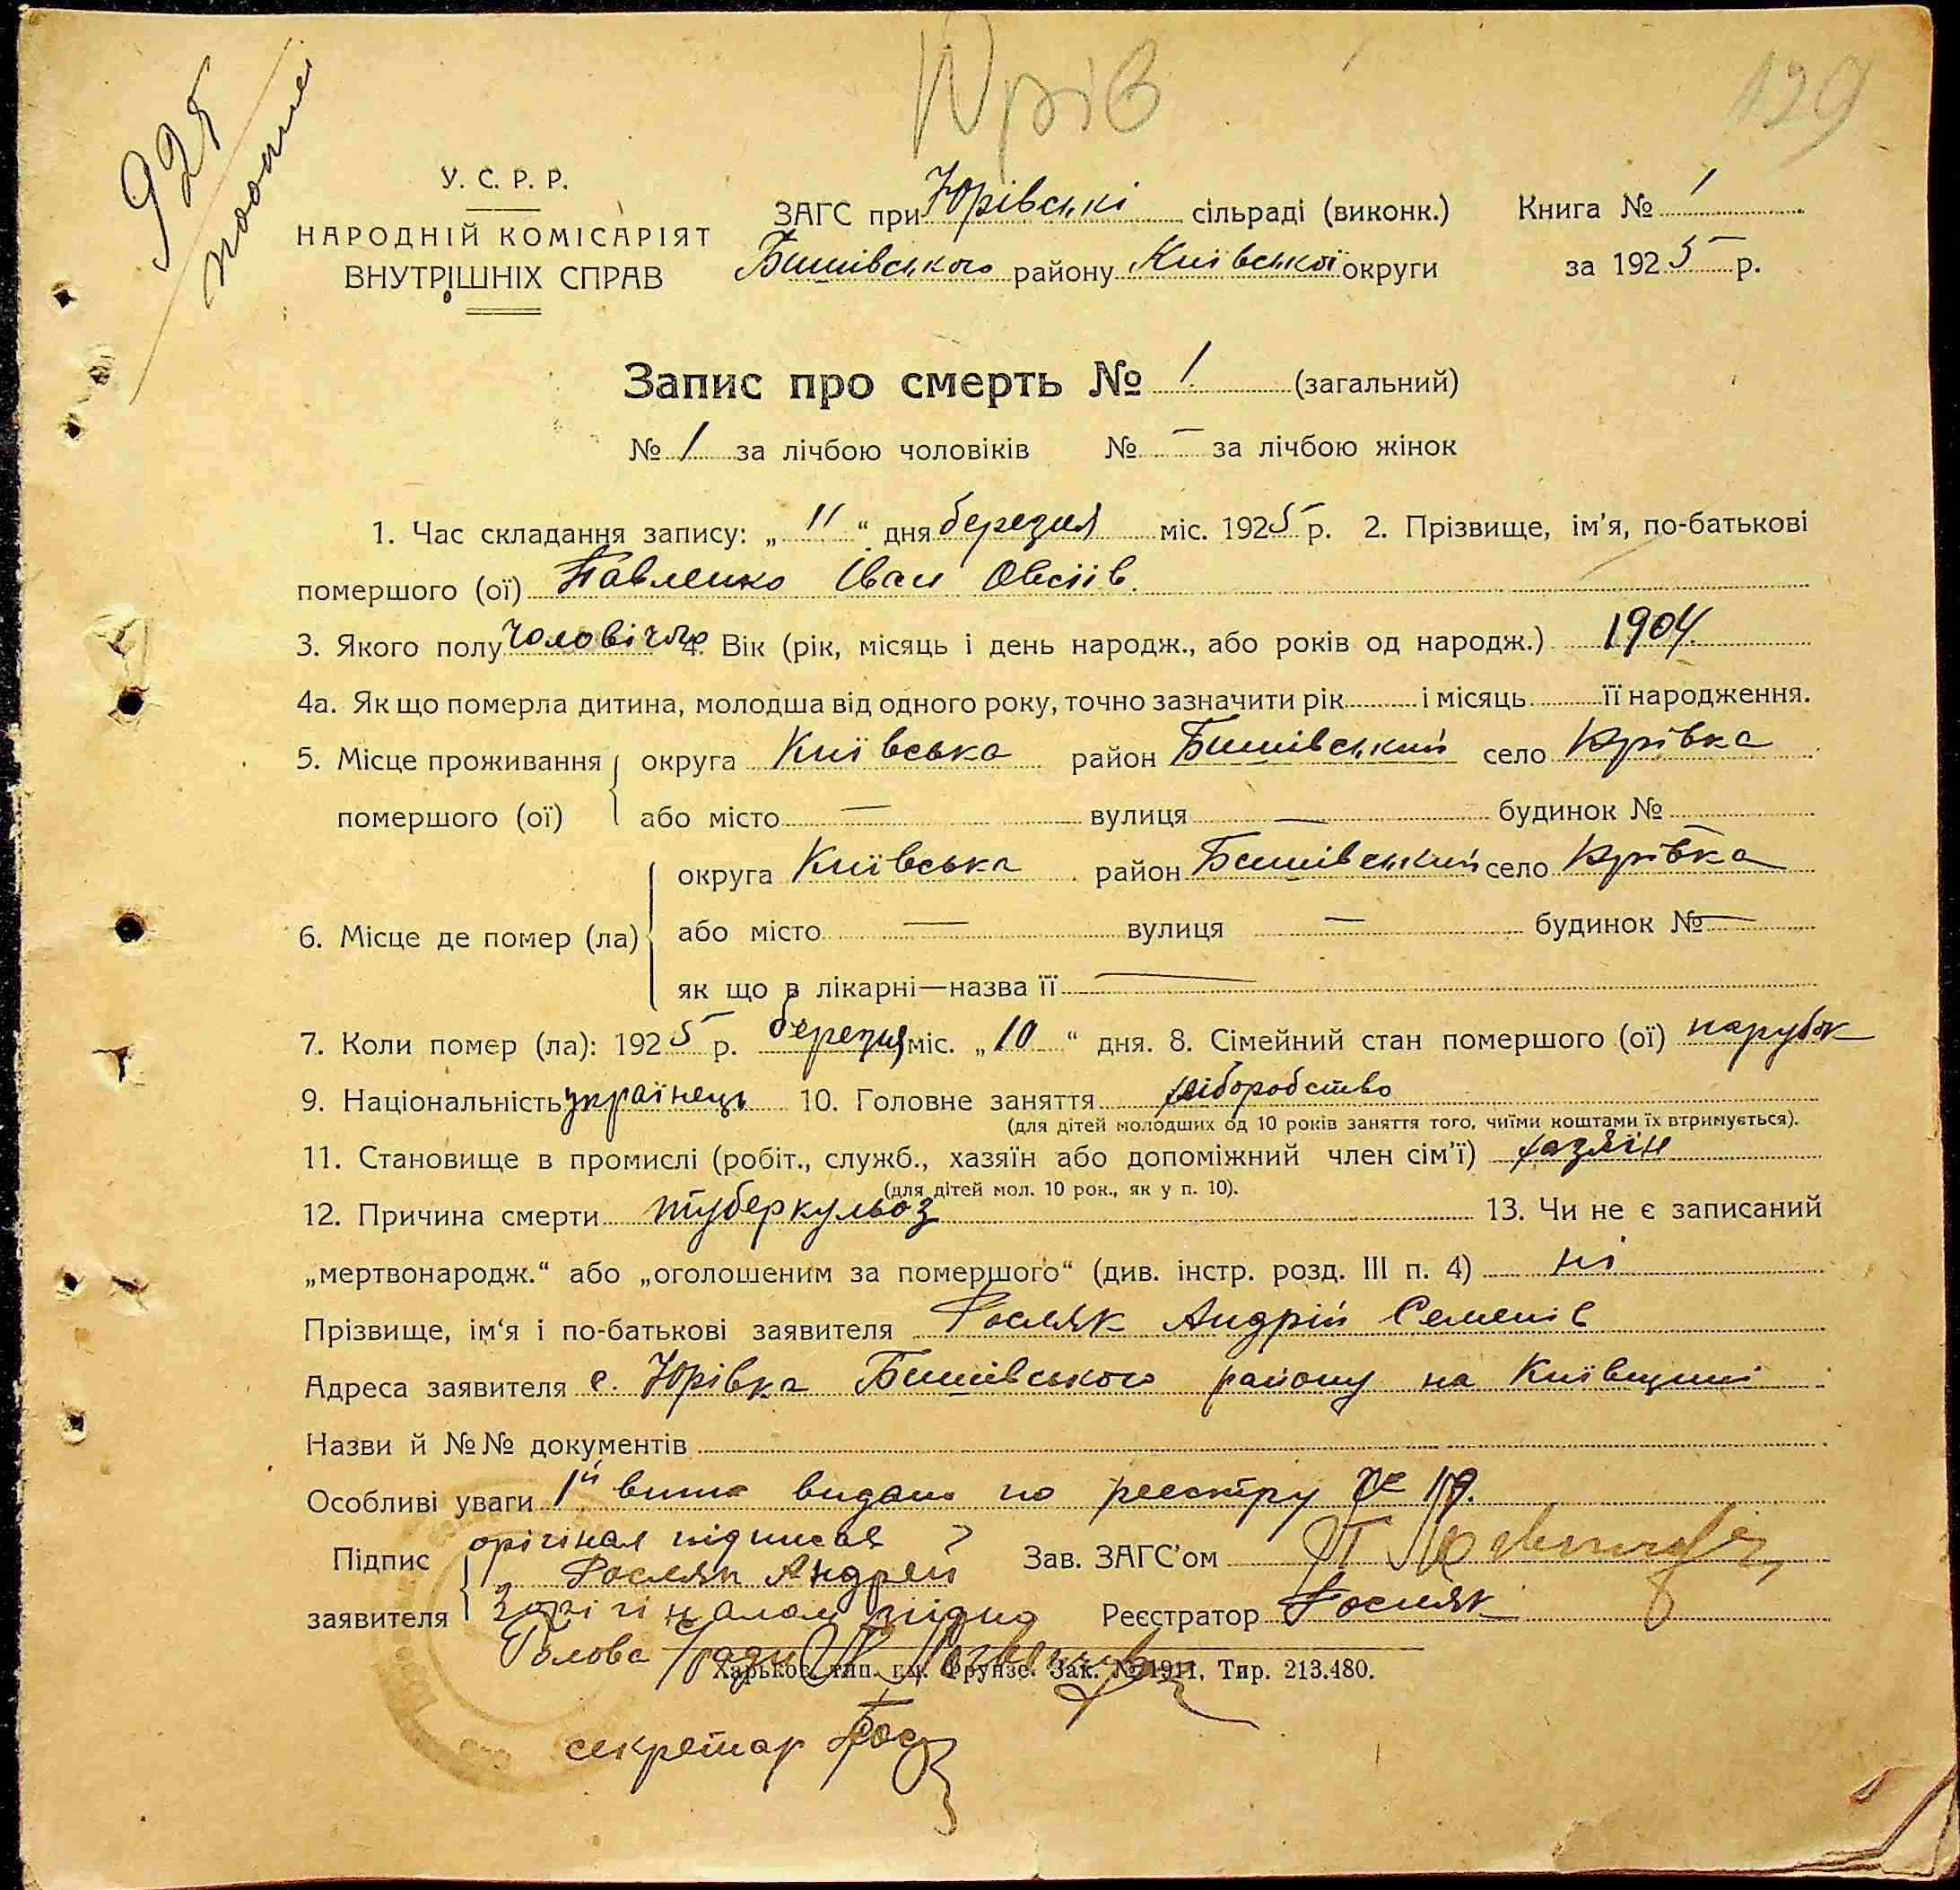 Юрів
129
925
У. С. Р. Р.
НАРОДНІЙ КОМІСАРІЯТ
ВНУТРІШНІХ СПРАВ
ЗАГС при Юрівські сільраді (виконк.) Книга № 1
Бишівського району Київської округи за 1925 р.
Запис про смерть № 1 (загальний)
№ 1 за лічбою чоловіків № — за лічбою жінок
1. Час складання запису: „ 11 “ дня березня міс. 1925 р. 2. Прізвище, ім’я, по-батькові
помершого (ої) Павленко Іван Овсіїв.
3. Якого полу чоловічого 4. Вік (рік, місяць і день народж., або років од народж.) 1904.
4а. Як що померла дитина, молодша від одного року, точно зазначити рік і місяць її народження.
5. Місце проживання округа Київська район Бишівський село Юрівка
помершого (ої) або місто — вулиця — будинок №
округа Київська район Бишівський село Юрівка
6. Місце де помер (ла) або місто — вулиця — будинок № —
як що в лікарні—назва її —
7. Коли помер (ла): 1925 р. березня міс. „ 10 “ дня. 8. Сімейний стан помершого (ої) парубок
9. Національність українець 10. Головне заняття хліборобство
(для дітей молодших од 10 років заняття того, чиїми коштами їх втримується).
11. Становище в промислі (робіт., служб., хазяїн або допоміжний член сім’ї) хазяїн
(для дітей мол. 10 рок., як у п. 10).
12. Причина смерти туберкульоз 13. Чи не є записаний
„мертвонародж.“ або „оголошеним за помершого“ (див. інстр. розд. III п. 4) ні
Прізвище, ім‘я і по-батькові заявителя Росляк Андрій Семенів
Адреса заявителя с. Юрівка Бишівського району на Київщині
Назви й №№ документів
Особливі уваги 1й видано по реєстру № 19.
Підпис орігінал підписав
Росляк Андрей Зав. ЗАГС’ом
заявителя З орігіналом згідно Реєстратор Росляк
Голова
Харьков, тип. им. Фрунзе. Зак. № 1911. Тир. 213.480.
секретар Рос